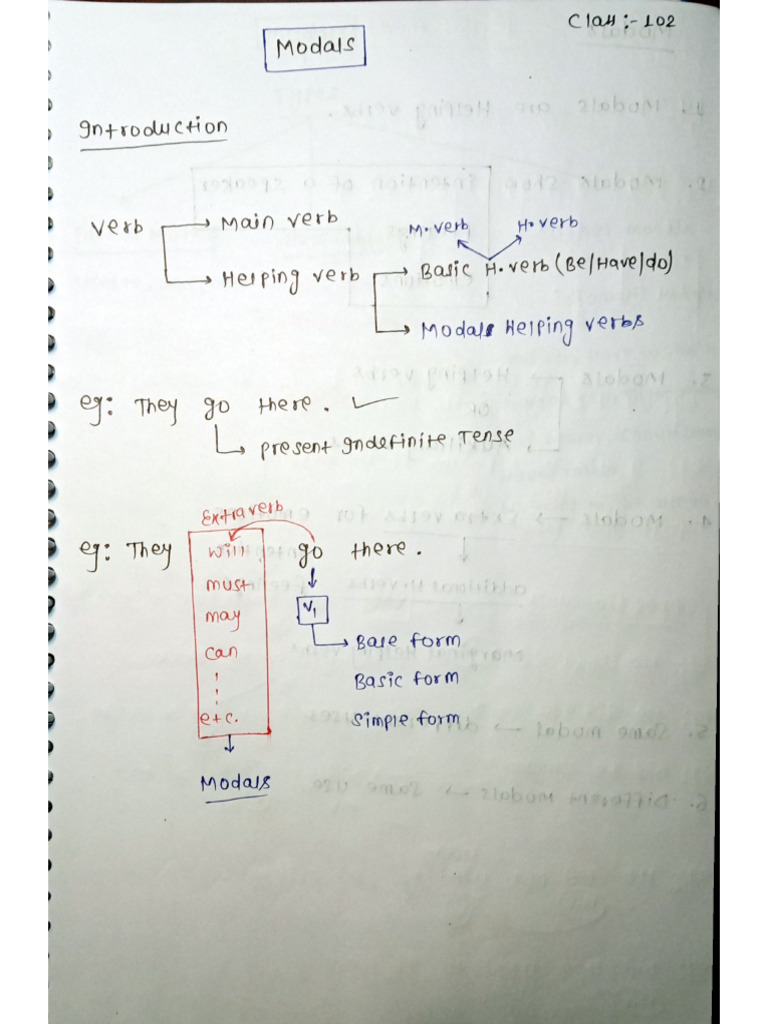 Class :- 102
Modals
Introduction
Verb → Main verb
M.verb H.verb
→ Helping verb → Basic H.verb (Be/Have/do)
→ Modals Helping verbs
eg: They go there. ✓
→ Present Indefinite Tense.
Extra verb
eg: They will go there.
must
may V1
can → Base form
Basic form
etc. Simple form
Modals